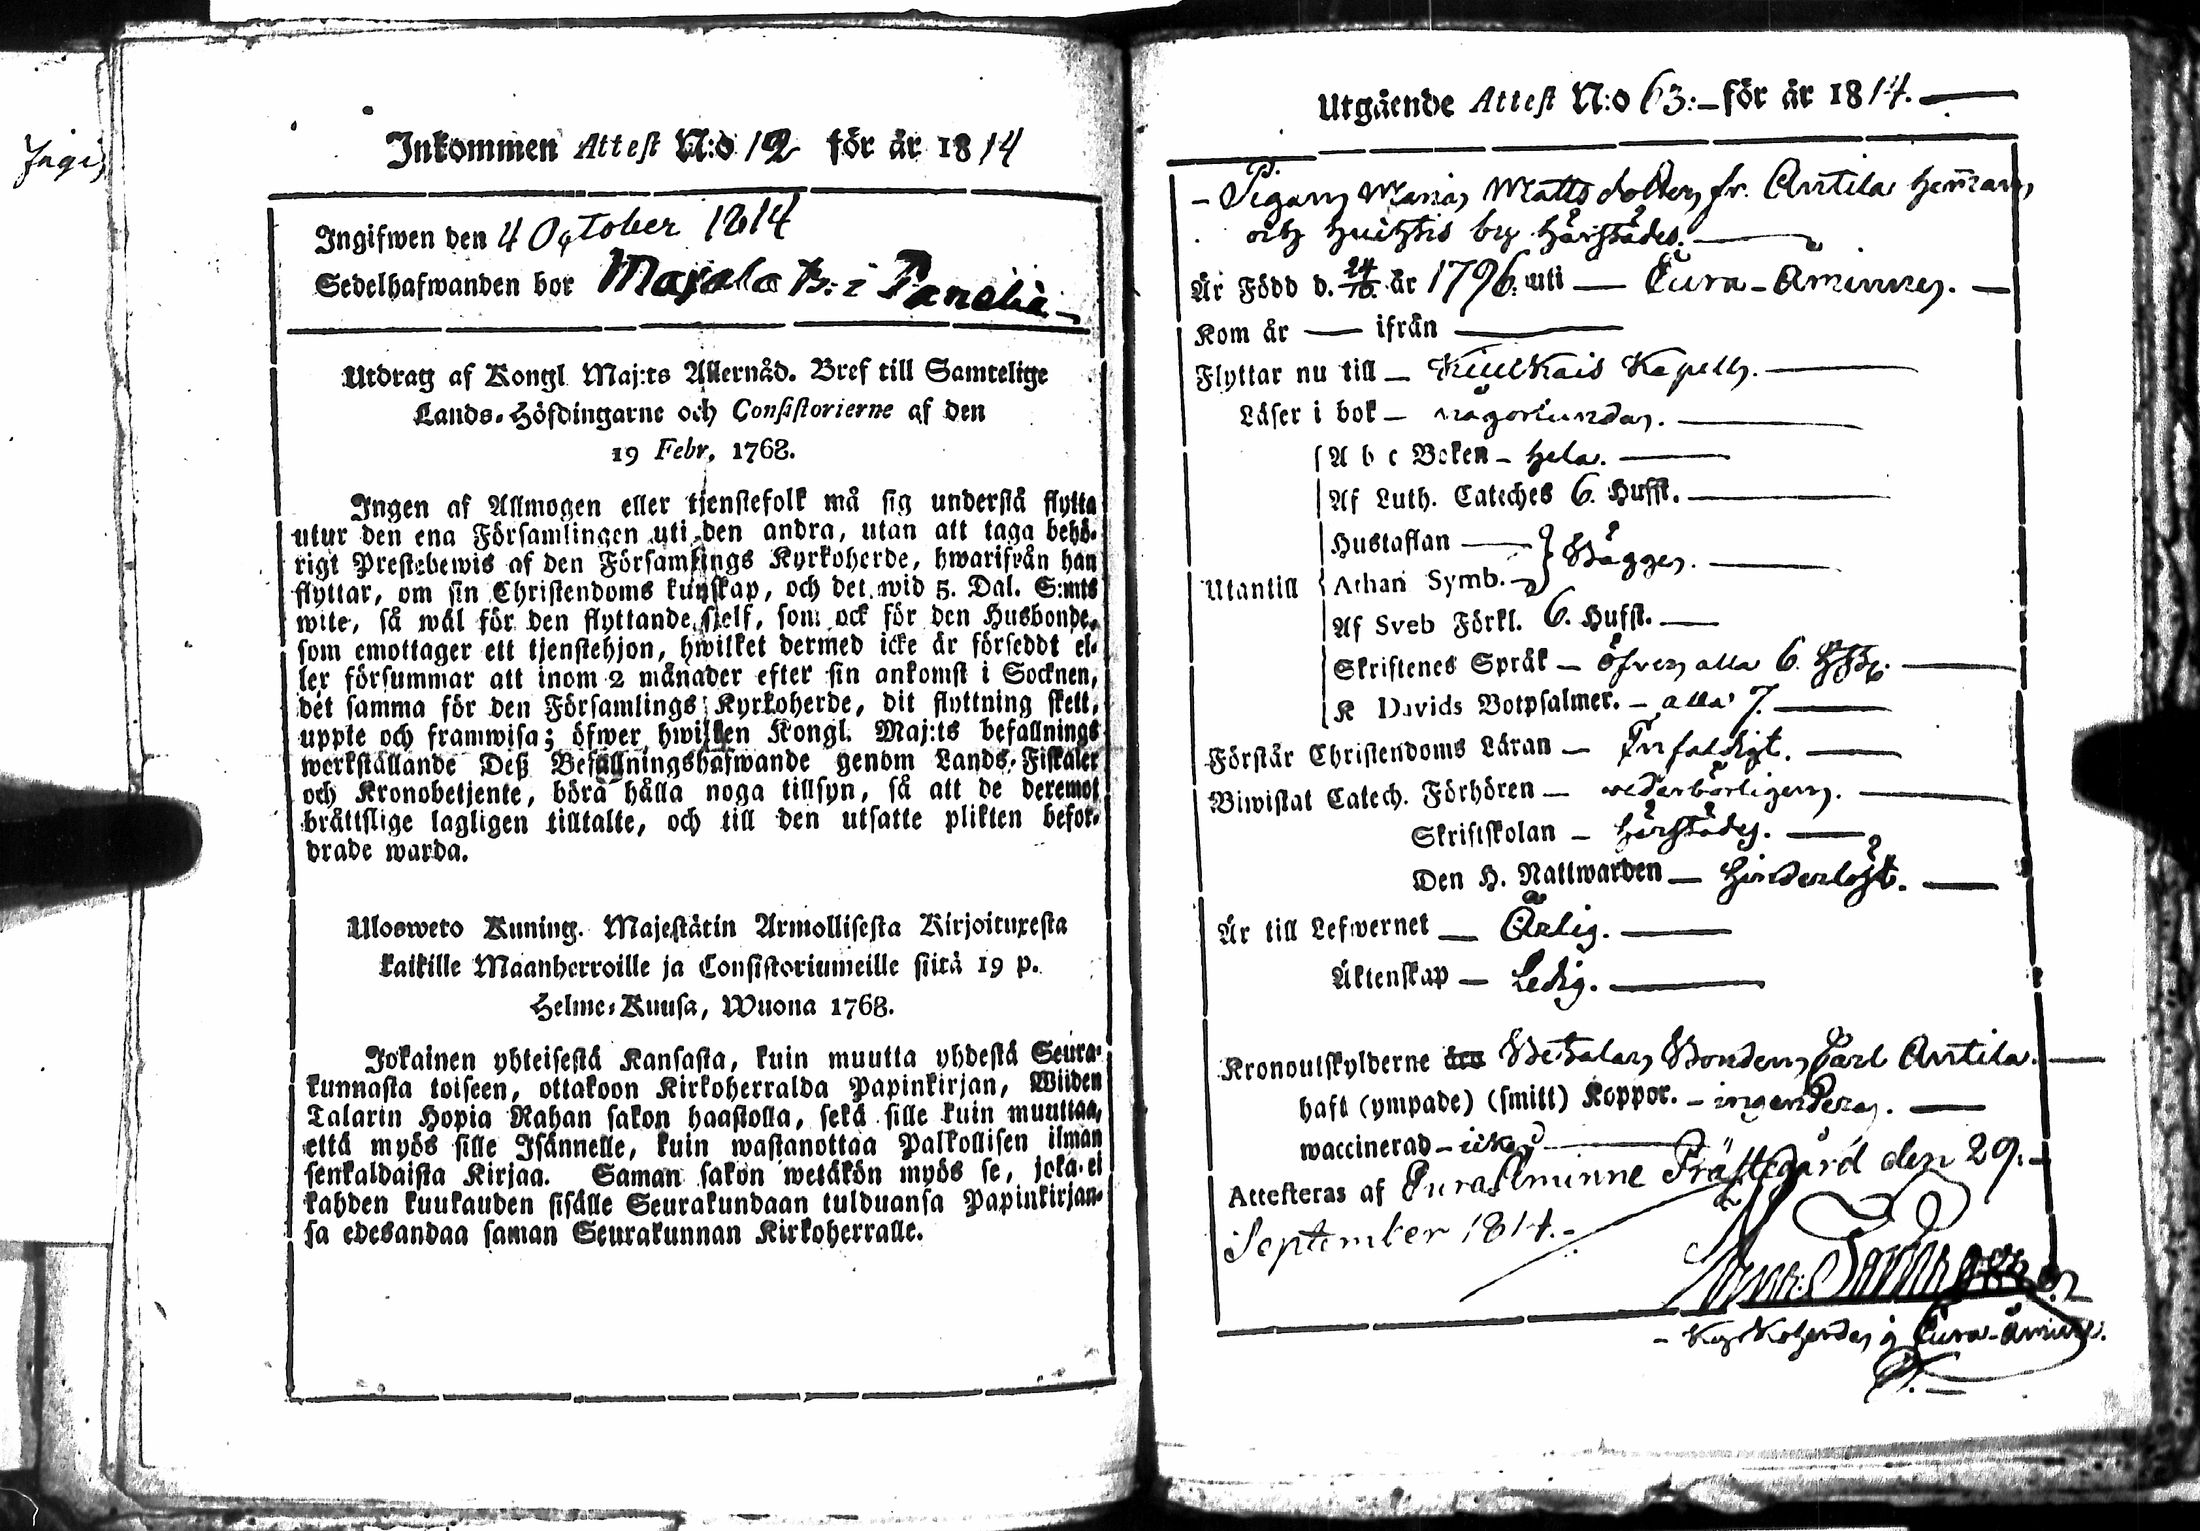 Ingif
Inkommen Attest N:o 12 för år 1814
Ingifwen den 4 October 1814
Sedelhafwanden bor Mayala B: i Panelia
Utdrag af Kongl Maj:ts Allernåd. Bref till Samtelige
Lands-Höfdingarne och Consistorierne af den
19 Febr. 1768.
Ingen af Allmogen eller tjenstefolk må sig understå flytta
utur den ena Församlingen uti den andra, utan att taga behö-
rigt Prestebewis af den Församlings Kyrkoherde, hwarifrån han
flyttar, om sin Christendoms kunskap, och det wid 5. Dal. S:mts
wite, så wäl för den flyttande sjelf, som ock för den Husbonde,
som emottager ett tjenstehjon, hwilket dermed icke är förseddt el-
ler försummar att inom 2 månader efter sin ankomst i Socknen,
det samma för den Församlings Kyrkoherde, dit flyttning skett,
uppte och framwisa; öfwer hwilken Kongl. Maj:ts befallnings
werkställande Deß Befallningshafwande genom Lands-Fiskaler
och Kronobetjente, böra hålla noga tillsyn, så att de deremot
bråttslige lagligen tilltalte, och till den utsatte plikten befor-
drade warda.
Ulosweto Kuning. Majestätin Armollisesta Kirjoituxesta
kaikille Maanherroille ja Consistoriumeille siitä 19 p.
Helme-Kuusa, Wuona 1768.
Jokainen yhteisestä Kansasta, kuin muutta yhdestä Seura-
kunnasta toiseen, ottakoon Kirkoherralda Papinkirjan, Wiiden
Talarin Hopia Rahan sakon haastolla, sekä sille kuin muuttaa,
että myös sille Isännelle, kuin wastanottaa Palkollisen ilman
senkaldaista Kirjaa. Saman sakon wetäkön myös se, joka ei
kahden kuukauden sisälle Seurakundaan tulduansa Papinkirjan-
sa edesandaa saman Seurakunnan Kirkoherralle.
Utgående Attest N:o 63:- för år 1814.
P.
- Pigan Maria Matts dotter fr. Antila Hemman
och by härstädes.
Är Född d. 24/10. år 1796. uti - Eura-Åminne.
Kom år - ifrån
Flyttar nu till - Kiukais Kapell.
Läser i bok - någorlunda.
A b c Boken - hela.
Af Luth. Cateches 6. Hufst.
Hustaflan
Utantill Athan Symb. Bägge.
Af Sveb Förkl. 6. Hufst.
Skriftenes Språk - öfver alla 6. HSt.
K Davids Botpsalmer. - alla 7.
Förstår Christendoms Läran - Enfaldigt.
Biwistat Catech. Förhören - vederbörligen.
Skriftskolan - härstädes.
Den H. Nattwarden - hinderlöst.
Är till Lefwernet - Ärlig.
Äktenskap - Ledig.
Kronoutskylderne Betalar Bonden Carl Antila.
haft (ympade) (smitt) Koppor. - ingendera.
waccinerad - icke
Attesteras af Eura Åminne Prästegård den 29.
September 1814.-
- Kyrkoherde i Eura-Åminne.